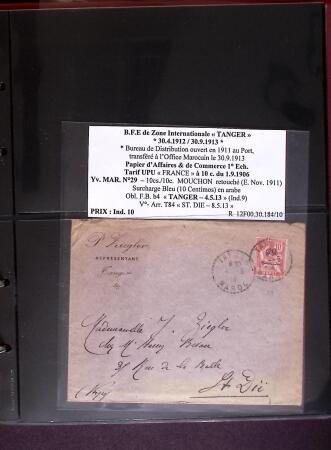 B.F.E de Zone Internationale « TANGER »
* 30.4.1912 / 30.9.1913 *
* Bureau de Distribution ouvert en 1911 au Port,
transféré à l'Office Marocain le 30.9.1913
Papier d'Affaires & de Commerce 1° Ech.
Tarif UPU « FRANCE » à 10 c. du 1.9.1906
Yv. MAR. N°29 – 10cs./10c. MOUCHON retouché (E. Nov. 1911)
Surcharge Bleu (10 Centimos) en arabe
Obl. F.B. b4 « TANGER – 4.5.13 » (Ind.9)
V°- Arr. T84 « ST. DIE – 8.5.13 »
PRIX : Ind. 10
R 12F00.30.184/10
P. Ziegler
REPRESENTANT
Tanger
MAROC
10
Mademoiselle J. Ziegler
chez Mr Henry
Rue de la Bolle
St Dié